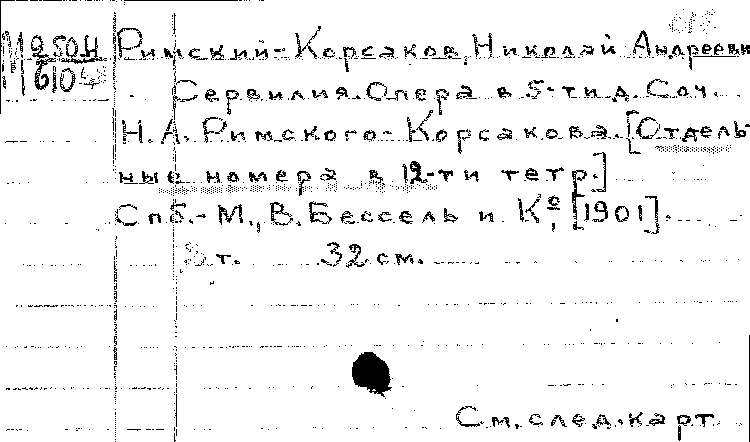 М 250-4 Римский-Корсаков, Николай Андреевич
610
Сервилия. Опера в 5-ти д. Соч.
Н.А. Римского-Корсакова. [Отдель-
ные номера в 12-ти тетр.]
Спб.-М., В. Бессель и К⁰, [1901].
т. 32 см.
См. след. карт